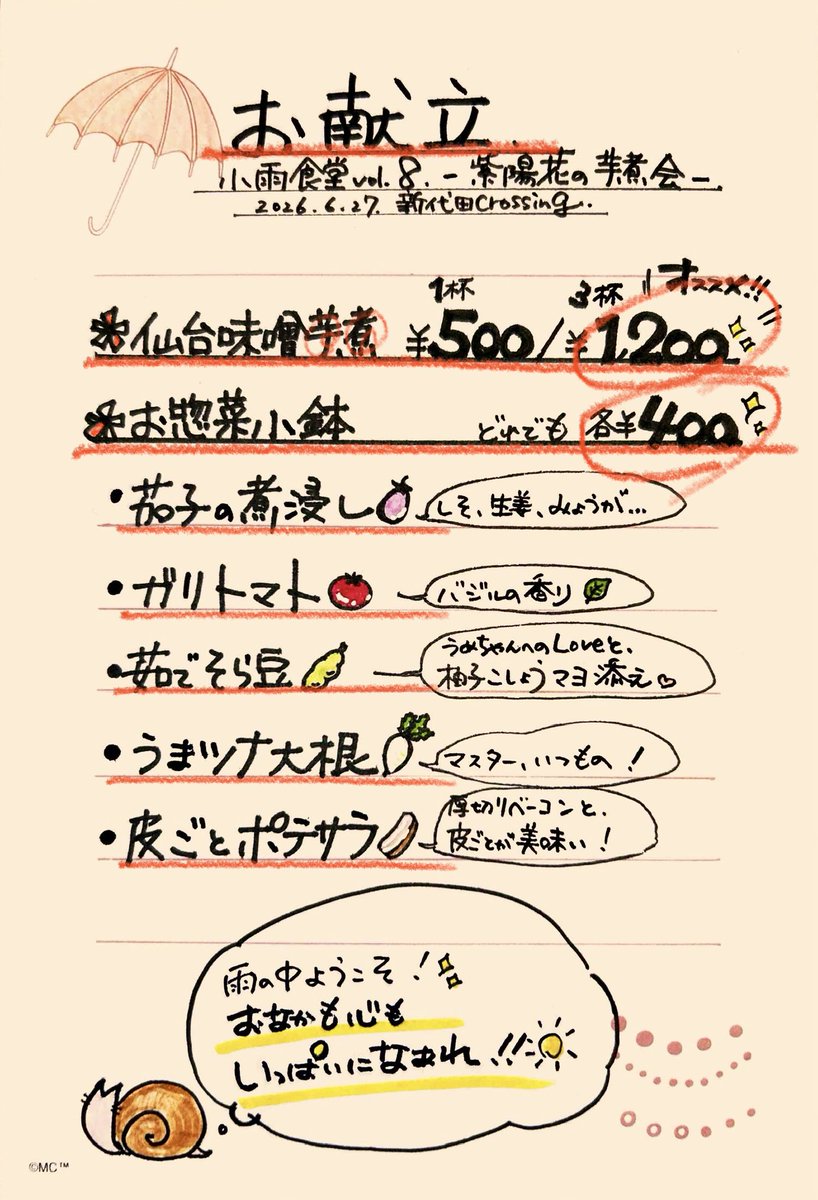 お献立
小雨食堂vol.8.-紫陽花の芋煮会-
2026.6.27. 新代田Crossing.
1杯 3杯 オススメ!!
仙台味噌芋煮 ¥500/¥1,200
お惣菜小鉢 どれでも 各¥400
・茄子の煮浸し しそ、生姜、みょうが…
・ガリトマト バジルの香り
・茹でそら豆 うめちゃんへのLoveと、
柚子こしょうマヨ添え♡
・うまツナ大根 マスター、いつもの!
・皮ごとポテサラ 厚切りベーコンと、
皮ごとが美味い!
雨の中ようこそ!
おなかも心も
いっぱいになあれ!!
©MC™